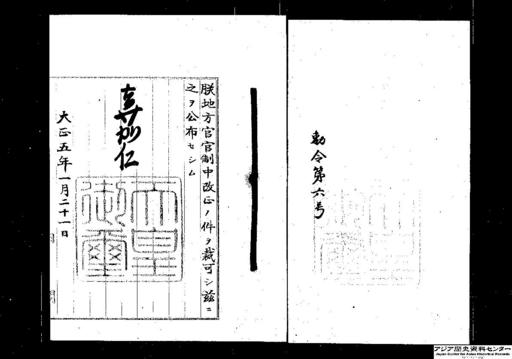 勅令第六号
朕地方官官制中改正ノ件ヲ裁可シ茲ニ
之ヲ公布セシム
嘉仁
天皇御璽
大正五年一月二十一日
アジア歴史資料センター
Japan Center for Asian Historical Records